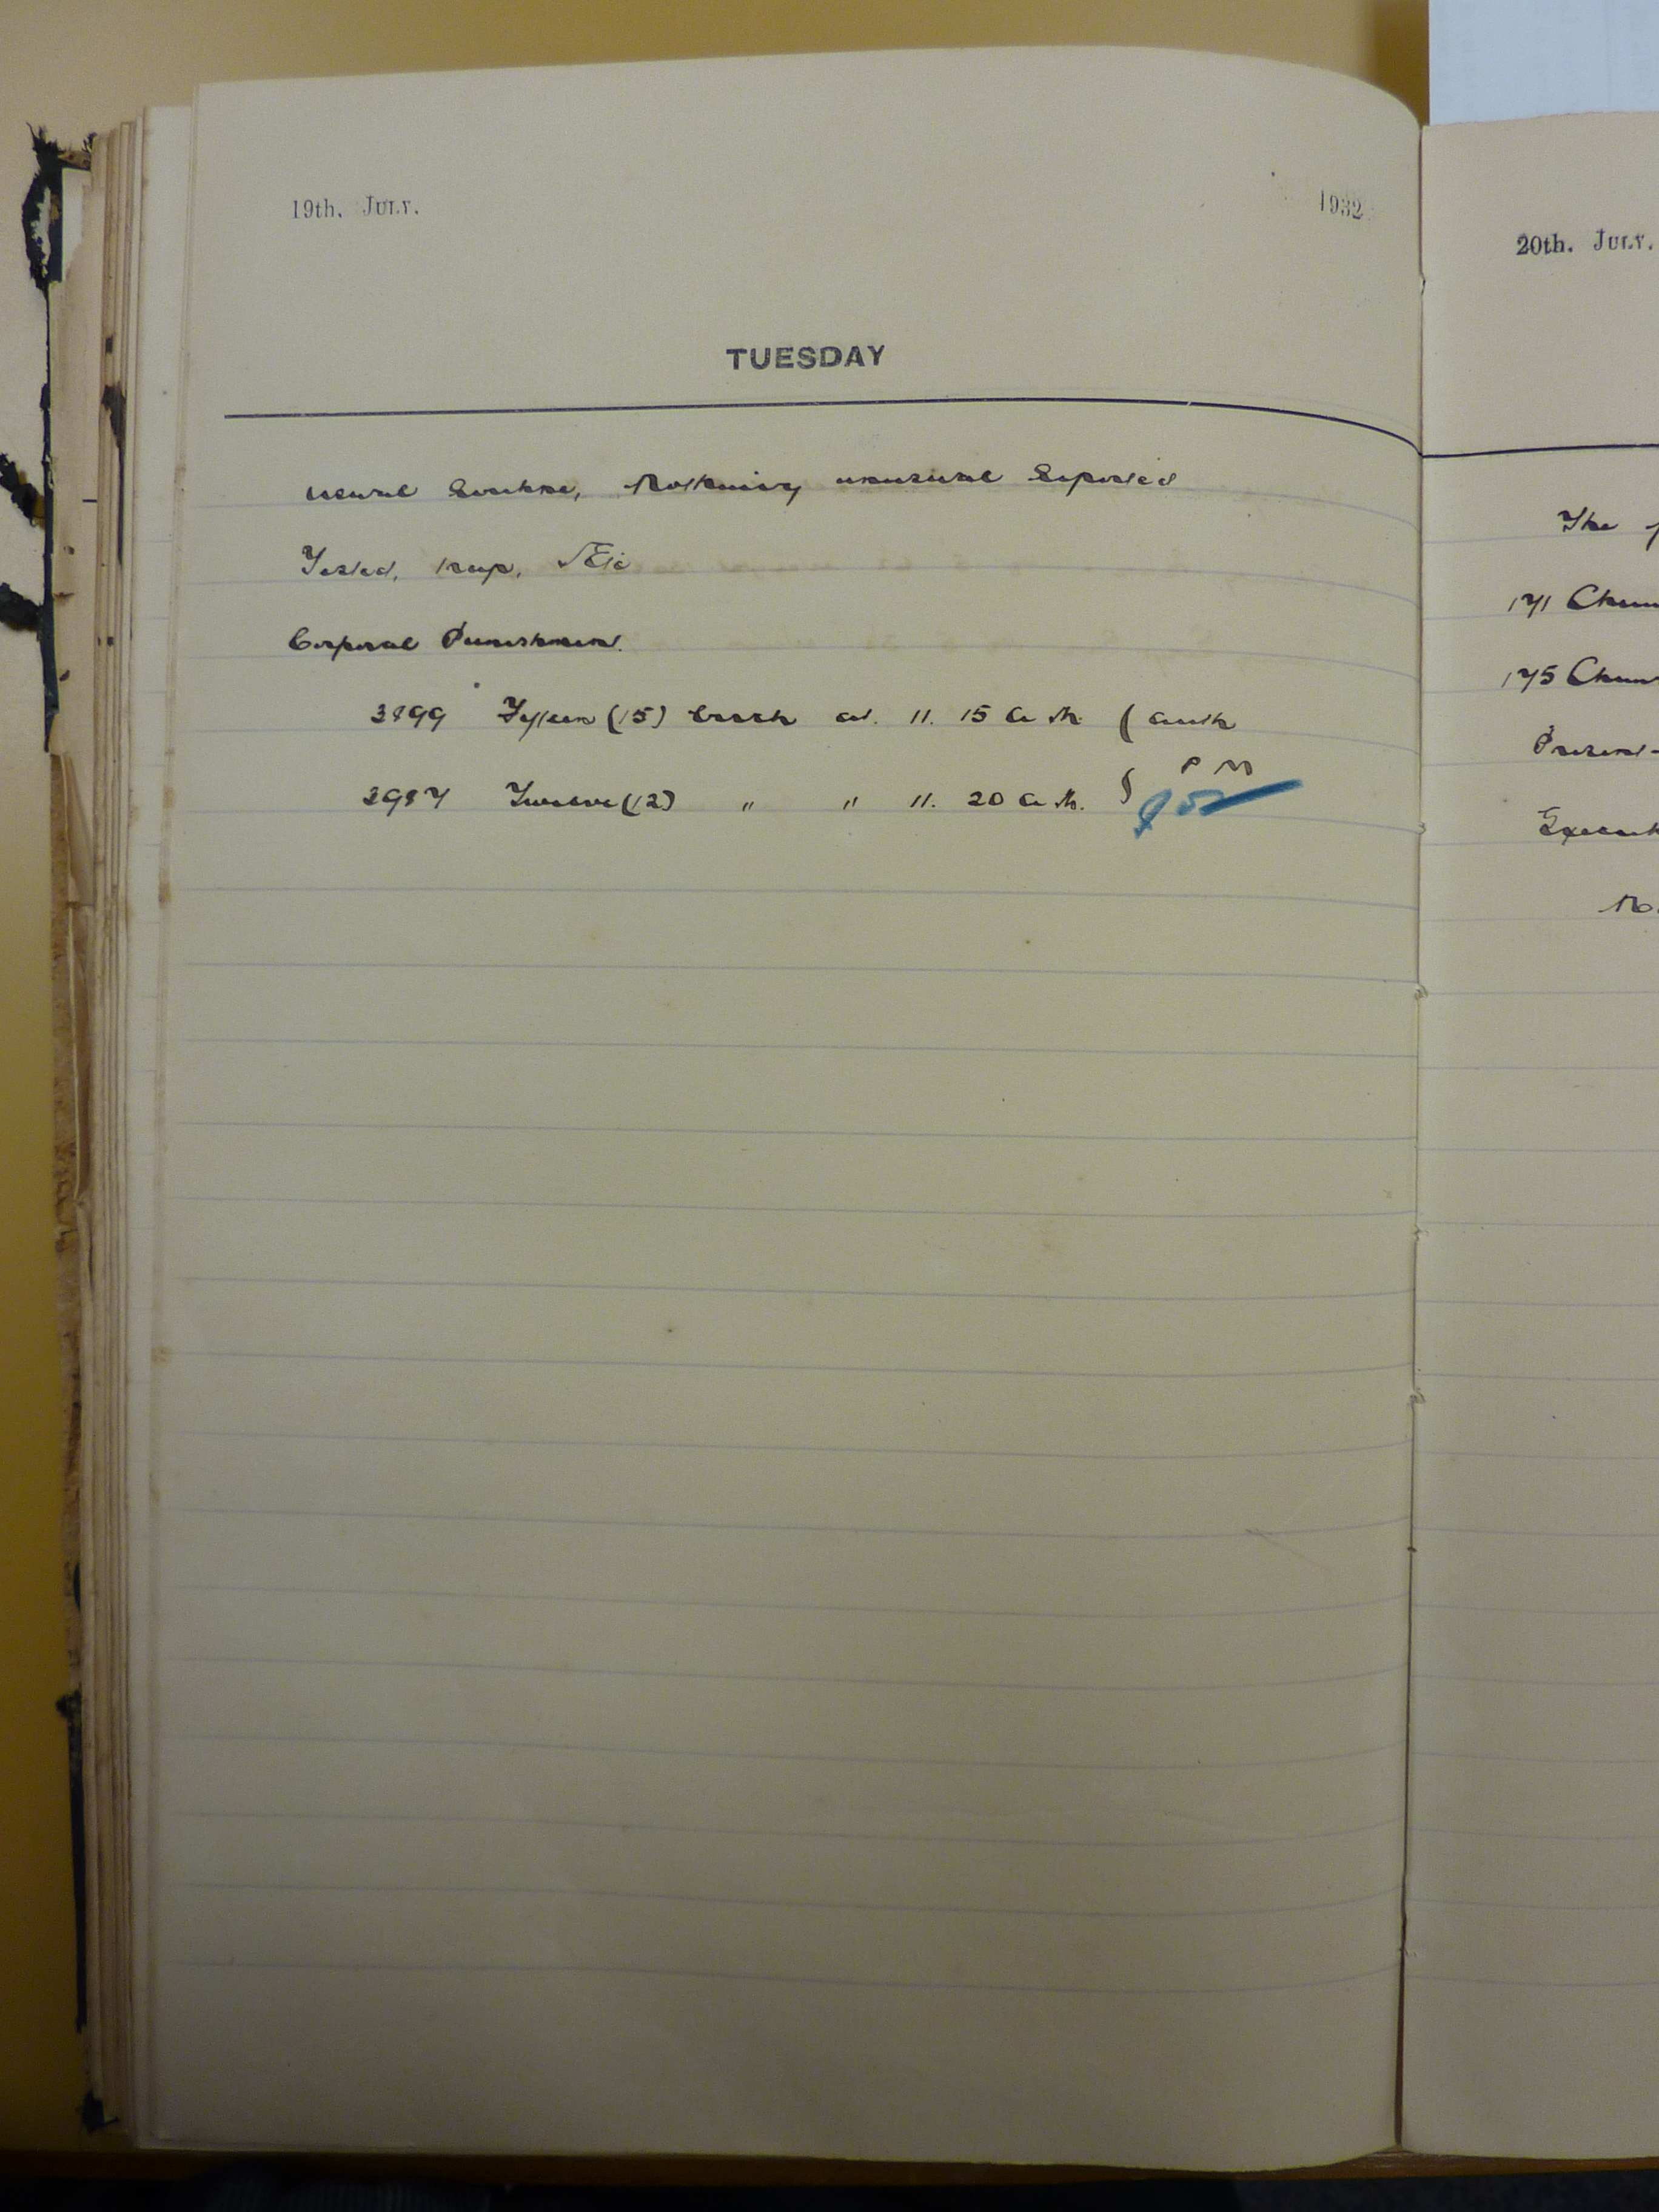 19th. JULY. 1932
TUESDAY
Usual Routine, Nothing unusual Reported
Tested, Etc
Corporal Punishment.
3899 Fifteen (15) at. 11. 15 A. M. ( auth
P M
2987 Twelve (12) " " 11. 20 A. M. }
20th. JULY.
The
171
175
Present-